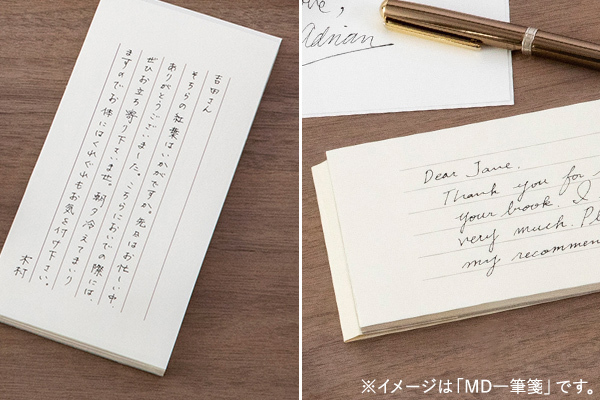 吉田さん
そちらの紅葉はいかがですか。先日はお忙しい中、
ありがとうございました。こちらにおいでの際には、
ぜひお立ち寄り下さいませ。朝夕冷えてまいり
ますのでお体にはくれぐれもお気を付け下さい。
木村
Adrian
Dear Jane,
Thank you for
your book. I
very much.
my
※イメージは「MD一筆箋」です。